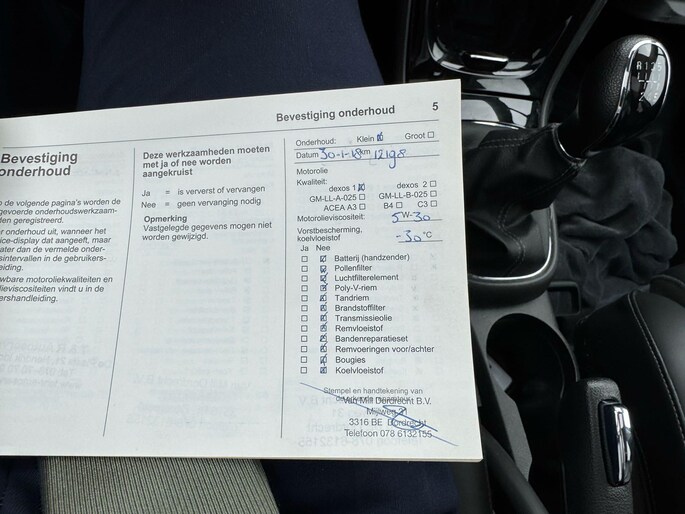 Bevestiging onderhoud 5
Bevestiging
onderhoud
de volgende pagina's worden de
gevoerde onderhoudswerkzaam-
den geregistreerd.
onderhoud uit, wanneer het
ice-display dat aangeeft, maar
ater dan de vermelde onder-
sintervallen in de gebruikers-
eiding.
wbare motoroliekwaliteiten en
lieviscositeiten vindt u in de
ershandleiding.
Deze werkzaamheden moeten
met ja of nee worden
aangekruist
Ja = is ververst of vervangen
Nee = geen vervanging nodig
Opmerking
Vastgelegde gegevens mogen niet
worden gewijzigd.
Onderhoud: Klein Groot
Datum 30-1-18 km 12198
Motorolie
Kwaliteit:
dexos 1 dexos 2
GM-LL-A-025 GM-LL-B-025
ACEA A3 B4 C3
Motorolieviscositeit: 5W-30
Vorstbescherming.
koelvloeistof -30°C
Ja Nee
Batterij (handzender)
Pollenfilter
Luchtfilterelement
Poly-V-riem
Tandriem
Brandstoffilter
Transmissieolie
Remvloeistof
Bandenreparatieset
Remvoeringen voor/achter
Bougies
Koelvloeistof
Stempel en handtekening van
Van Mill Dordrecht B.V.
Mijlweg 31
3316 BE Dordrecht
Telefoon 078 6132155
R 1 3 5
2